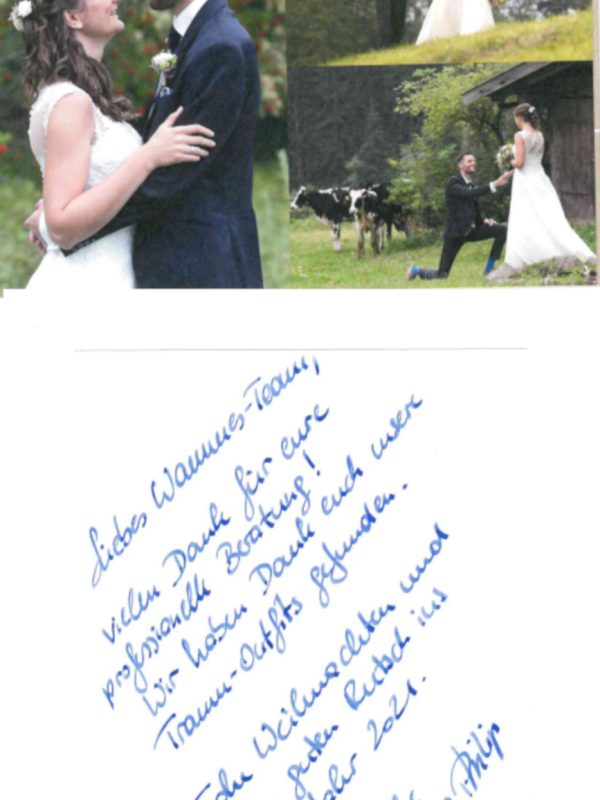 Liebes Wammes-Team,
vielen Dank für eure
professionelle Beratung!
Wir haben Dank euch unsere
Traum-Outfits gefunden.
Weihnachten und
guten Rutsch ins
Jahr 2021.
Philip